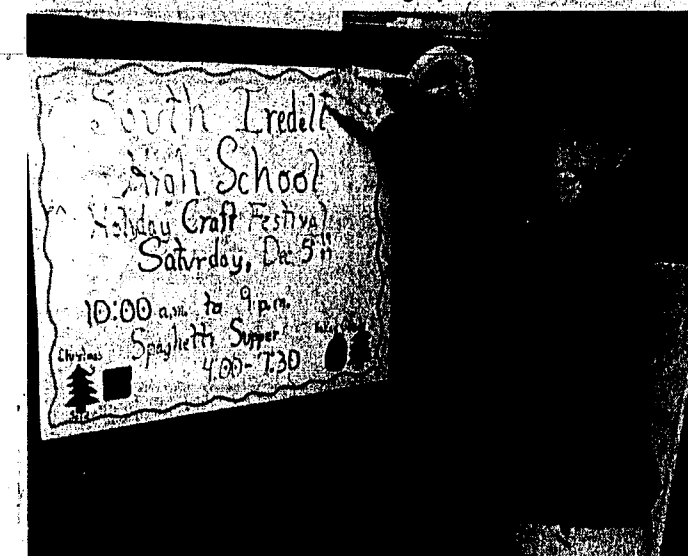 South Iredell
High School
Holiday Craft Festival
Saturday, Dec. 5th
10:00 a.m. to 9 p.m.
Spaghetti Supper
4:00-7:30
Christmas